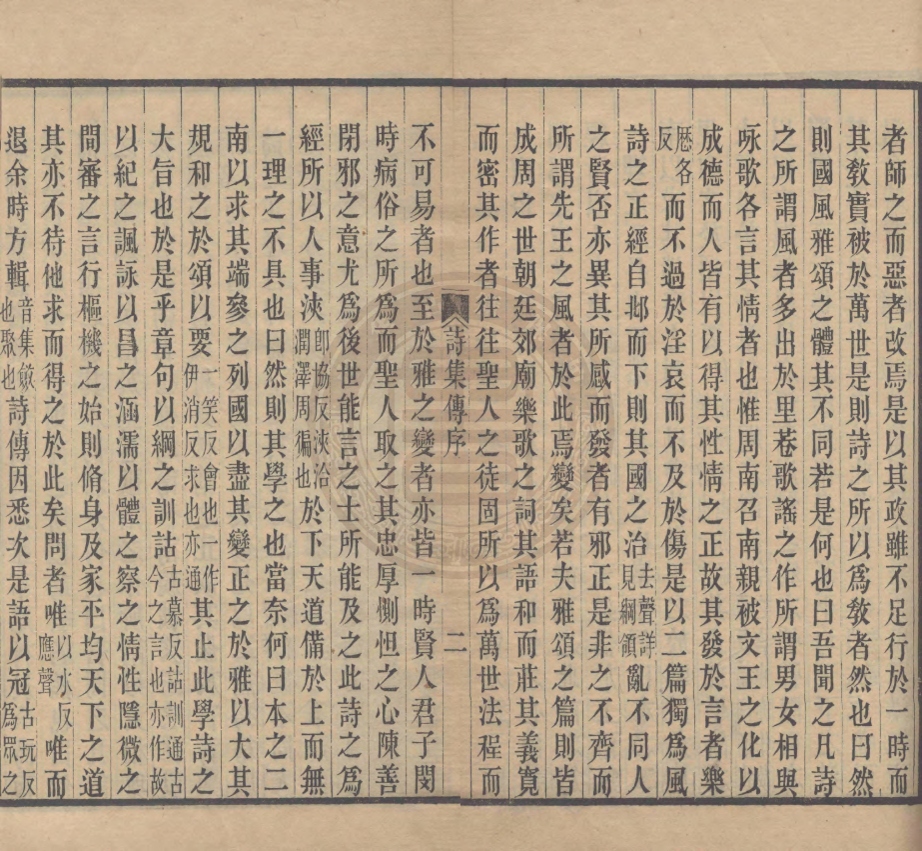 者師之而惡者改焉是以其政雖不足行於一時而
其敎實被於萬世是則詩之所以爲敎者然也曰然
則國風雅頌之體其不同若是何也曰吾聞之凡詩
之所謂風者多出於里巷歌謠之作所謂男女相與
咏歌各言其情者也惟周南召南親被文王之化以
成德而人皆有以得其性情之正故其發於言者樂
歷各反而不過於淫哀而不及於傷是以二篇獨爲風
詩之正經自邶而下則其國之治去聲詳見綱領亂不同人
之賢否亦異其所感而發者有邪正是非之不齊而
所謂先王之風者於此焉變矣若夫雅頌之篇則皆
成周之世朝廷郊廟樂歌之詞其語和而莊其義寬
而密其作者往往聖人之徒固所以爲萬世法程而
詩集傳序 二
不可易者也至於雅之變者亦皆一時賢人君子閔
時病俗之所爲而聖人取之其忠厚惻怛之心陳善
閉邪之意尤爲後世能言之士所能及之此詩之爲
經所以人事浹卽協反浹洽潤澤周徧也於下天道備於上而無
一理之不具也曰然則其學之也當奈何曰本之二
南以求其端參之列國以盡其變正之於雅以大其
規和之於頌以要一笑反會也一作伊消反求也亦通其止此學詩之
大旨也於是乎章句以綱之訓詁古慕反詁訓通古今之言也亦作故
以紀之諷詠以昌之涵濡以體之察之情性隱微之
間審之言行樞機之始則脩身及家平均天下之道
其亦不待他求而得之於此矣問者唯以水反應聲唯而
退余時方輯音集斂也聚也詩傳因悉次是語以冠古玩反爲眾之